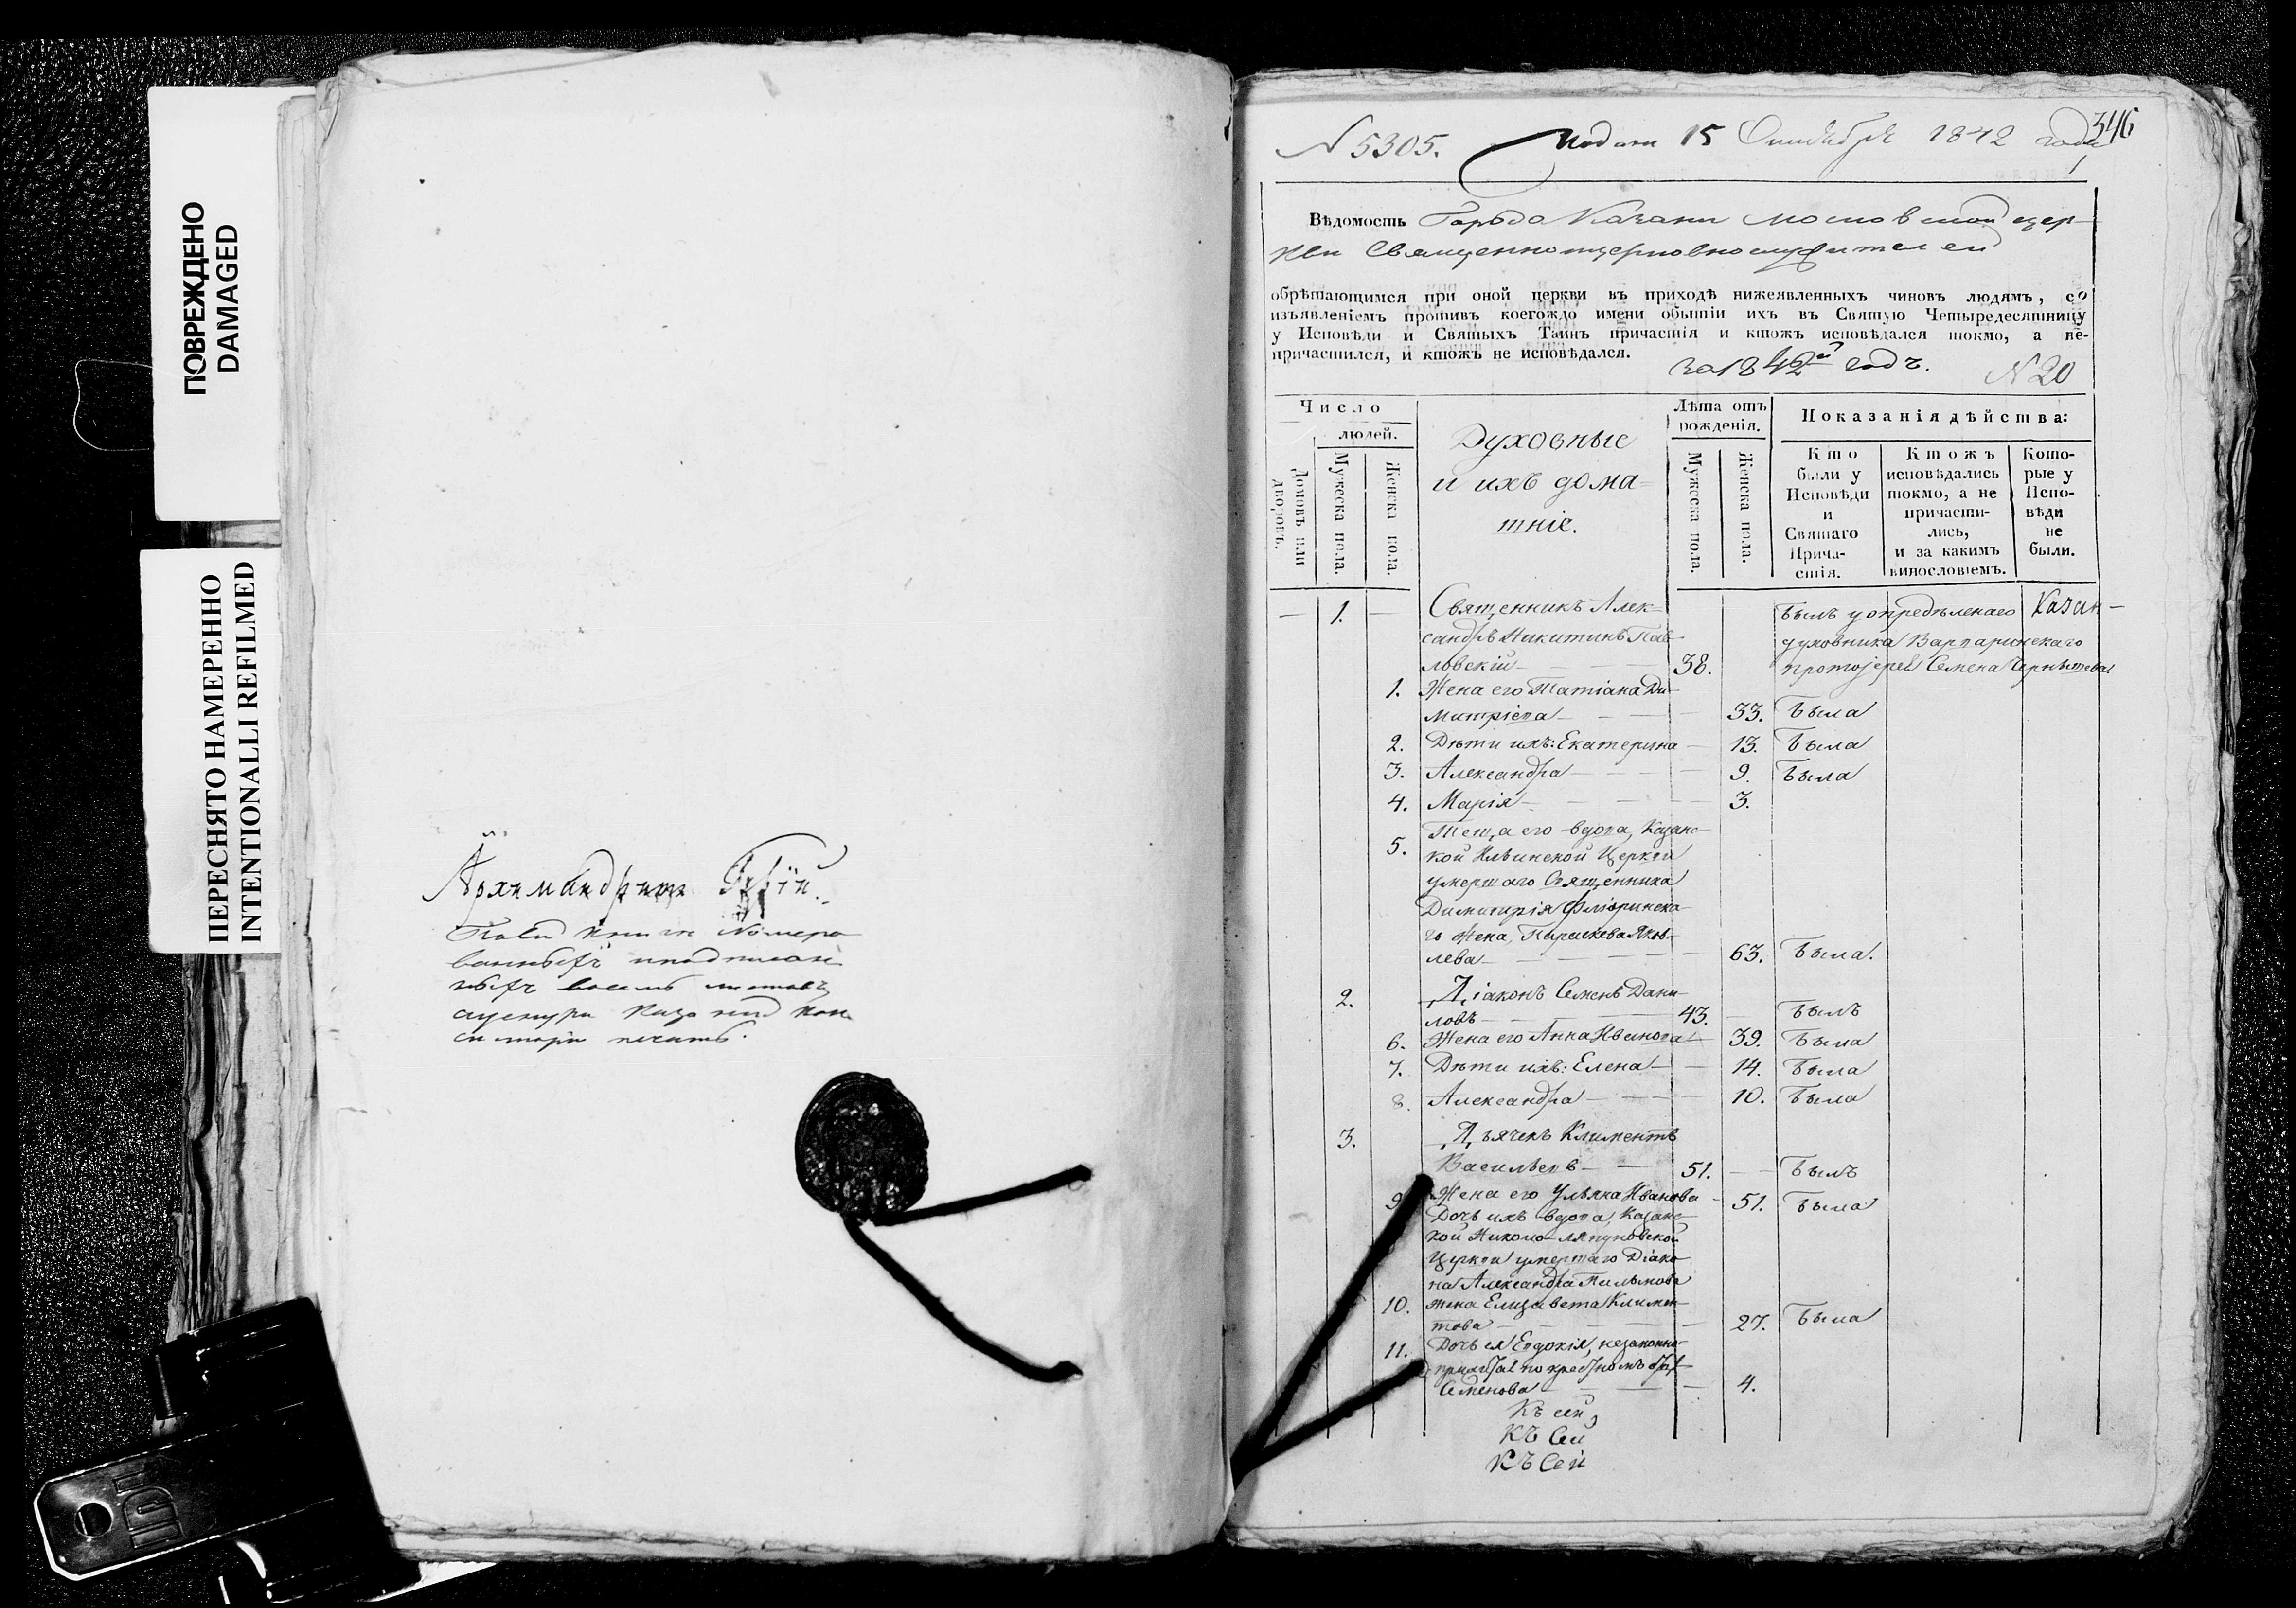 ПОВРЕЖДЕНО
DAMAGED
ПЕРЕСНЯТО НАМЕРЕННО
INTENTIONALLI REFILMED
Архимандритъ
Номеро
ванныхъ
восемь листовъ
печать.
346
N 5305. Подан 15 Октября 1842 года
Вѣдомость Города Казани Московской цер-
кви Священноцерковнослужителей
обрѣтающимся при оной церкви въ приходѣ нижеявленныхъ чиновъ людямъ, со
изъявленіемъ противъ коегождо имени обытіи ихъ въ Святую Четыредесятницу
у Исповѣди и Святыхъ Таинъ причастія и ктожъ исповѣдался токмо, а не-
причастился, и ктожъ не исповѣдался.
за 1842й годъ. N 20
Число
людей.
Домовъ или дворовъ.
Мужеска пола.
Женска пола.
Духовные
и ихъ дома=
шніе.
Лѣта отъ
рожденія.
Мужеска пола.
Женска пола.
Показанія дѣйства:
Кто
были у
Исповѣди
и
Святаго
Прича-
стія.
Ктожъ
исповѣдались
токмо, а не
причасти-
лись,
и за какимъ
винословіемъ.
Кото-
рые у
Испо-
вѣди
не
были.
1. Священникъ Алек= Былъ у опредѣленаго Казан-
сандръ Никитинъ Пав- духовника Варваринскаго
ловскій 38. протоіерея Семена
1. Жена его Татіана Ди-
митріева 33. Была
2. Дѣти ихъ: Екатерина 13. Была
3. Александра 9. Была
4. Марія 3.
Теща его вдова, Казанс-
5. кой Ильинской Церкви
умершаго Священника
Димитрія Флоринска-
го Жена, Параскева Яков-
лева 63. Была.
2. Діаконъ Семенъ Дани-
ловъ 43. Былъ
6. Жена его Анна Иванова 39. Была
7. Дѣти ихъ: Елена 14. Была
8. Александра 10. Была
3. Дьячекъ Климентъ
Васильевъ 51. Былъ
9 Жена его Ульяна Иванова 51. Была
Дочь ихъ вдова, Казанс-
кой Николо-ляпуновской
Церкви умершаго Діако-
на Александра
10. жена Елизавета Климен-
това 27. Была
11. Дочь ея Евдокія, незаконно-
по крестномъ
Семенова 4.
Къ сей
Къ Сей
Къ Сей